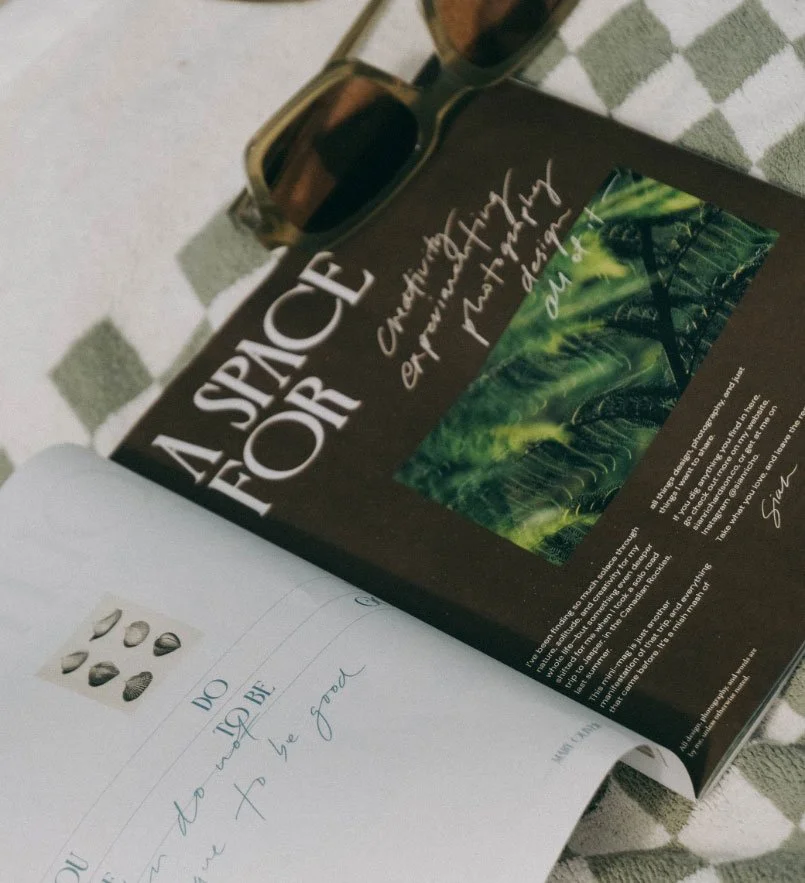 A SPACE
FOR
Creativity
experimenting
photography
design
all of it
I've been finding so much solace through
nature, solitude, and creativity for my
whole life—but something even deeper
shifted for me when I took a solo road
trip to Jasper, in the Canadian Rockies,
last summer.
This mini-mag is just another
manifestation of that trip, and everything
that came before. It's a mish mash of
all things design, photography, and just
things I want to share.
If you dig anything you find in here,
go check out more on my website,
sianrichardson.co, or get at me on
Instagram @sianricho.
Take what you love, and leave the
Sian
All design, photography, and words are
by me, unless otherwise noted.
DO
TO BE
do not
to be good
MARY OLIVER